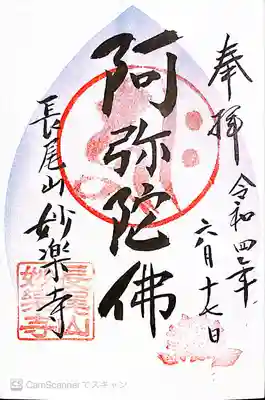 奉拝
令和四年
六月十七日
阿弥陀佛
長尾山 妙楽寺
長尾山
妙楽寺
CamScannerでスキャン